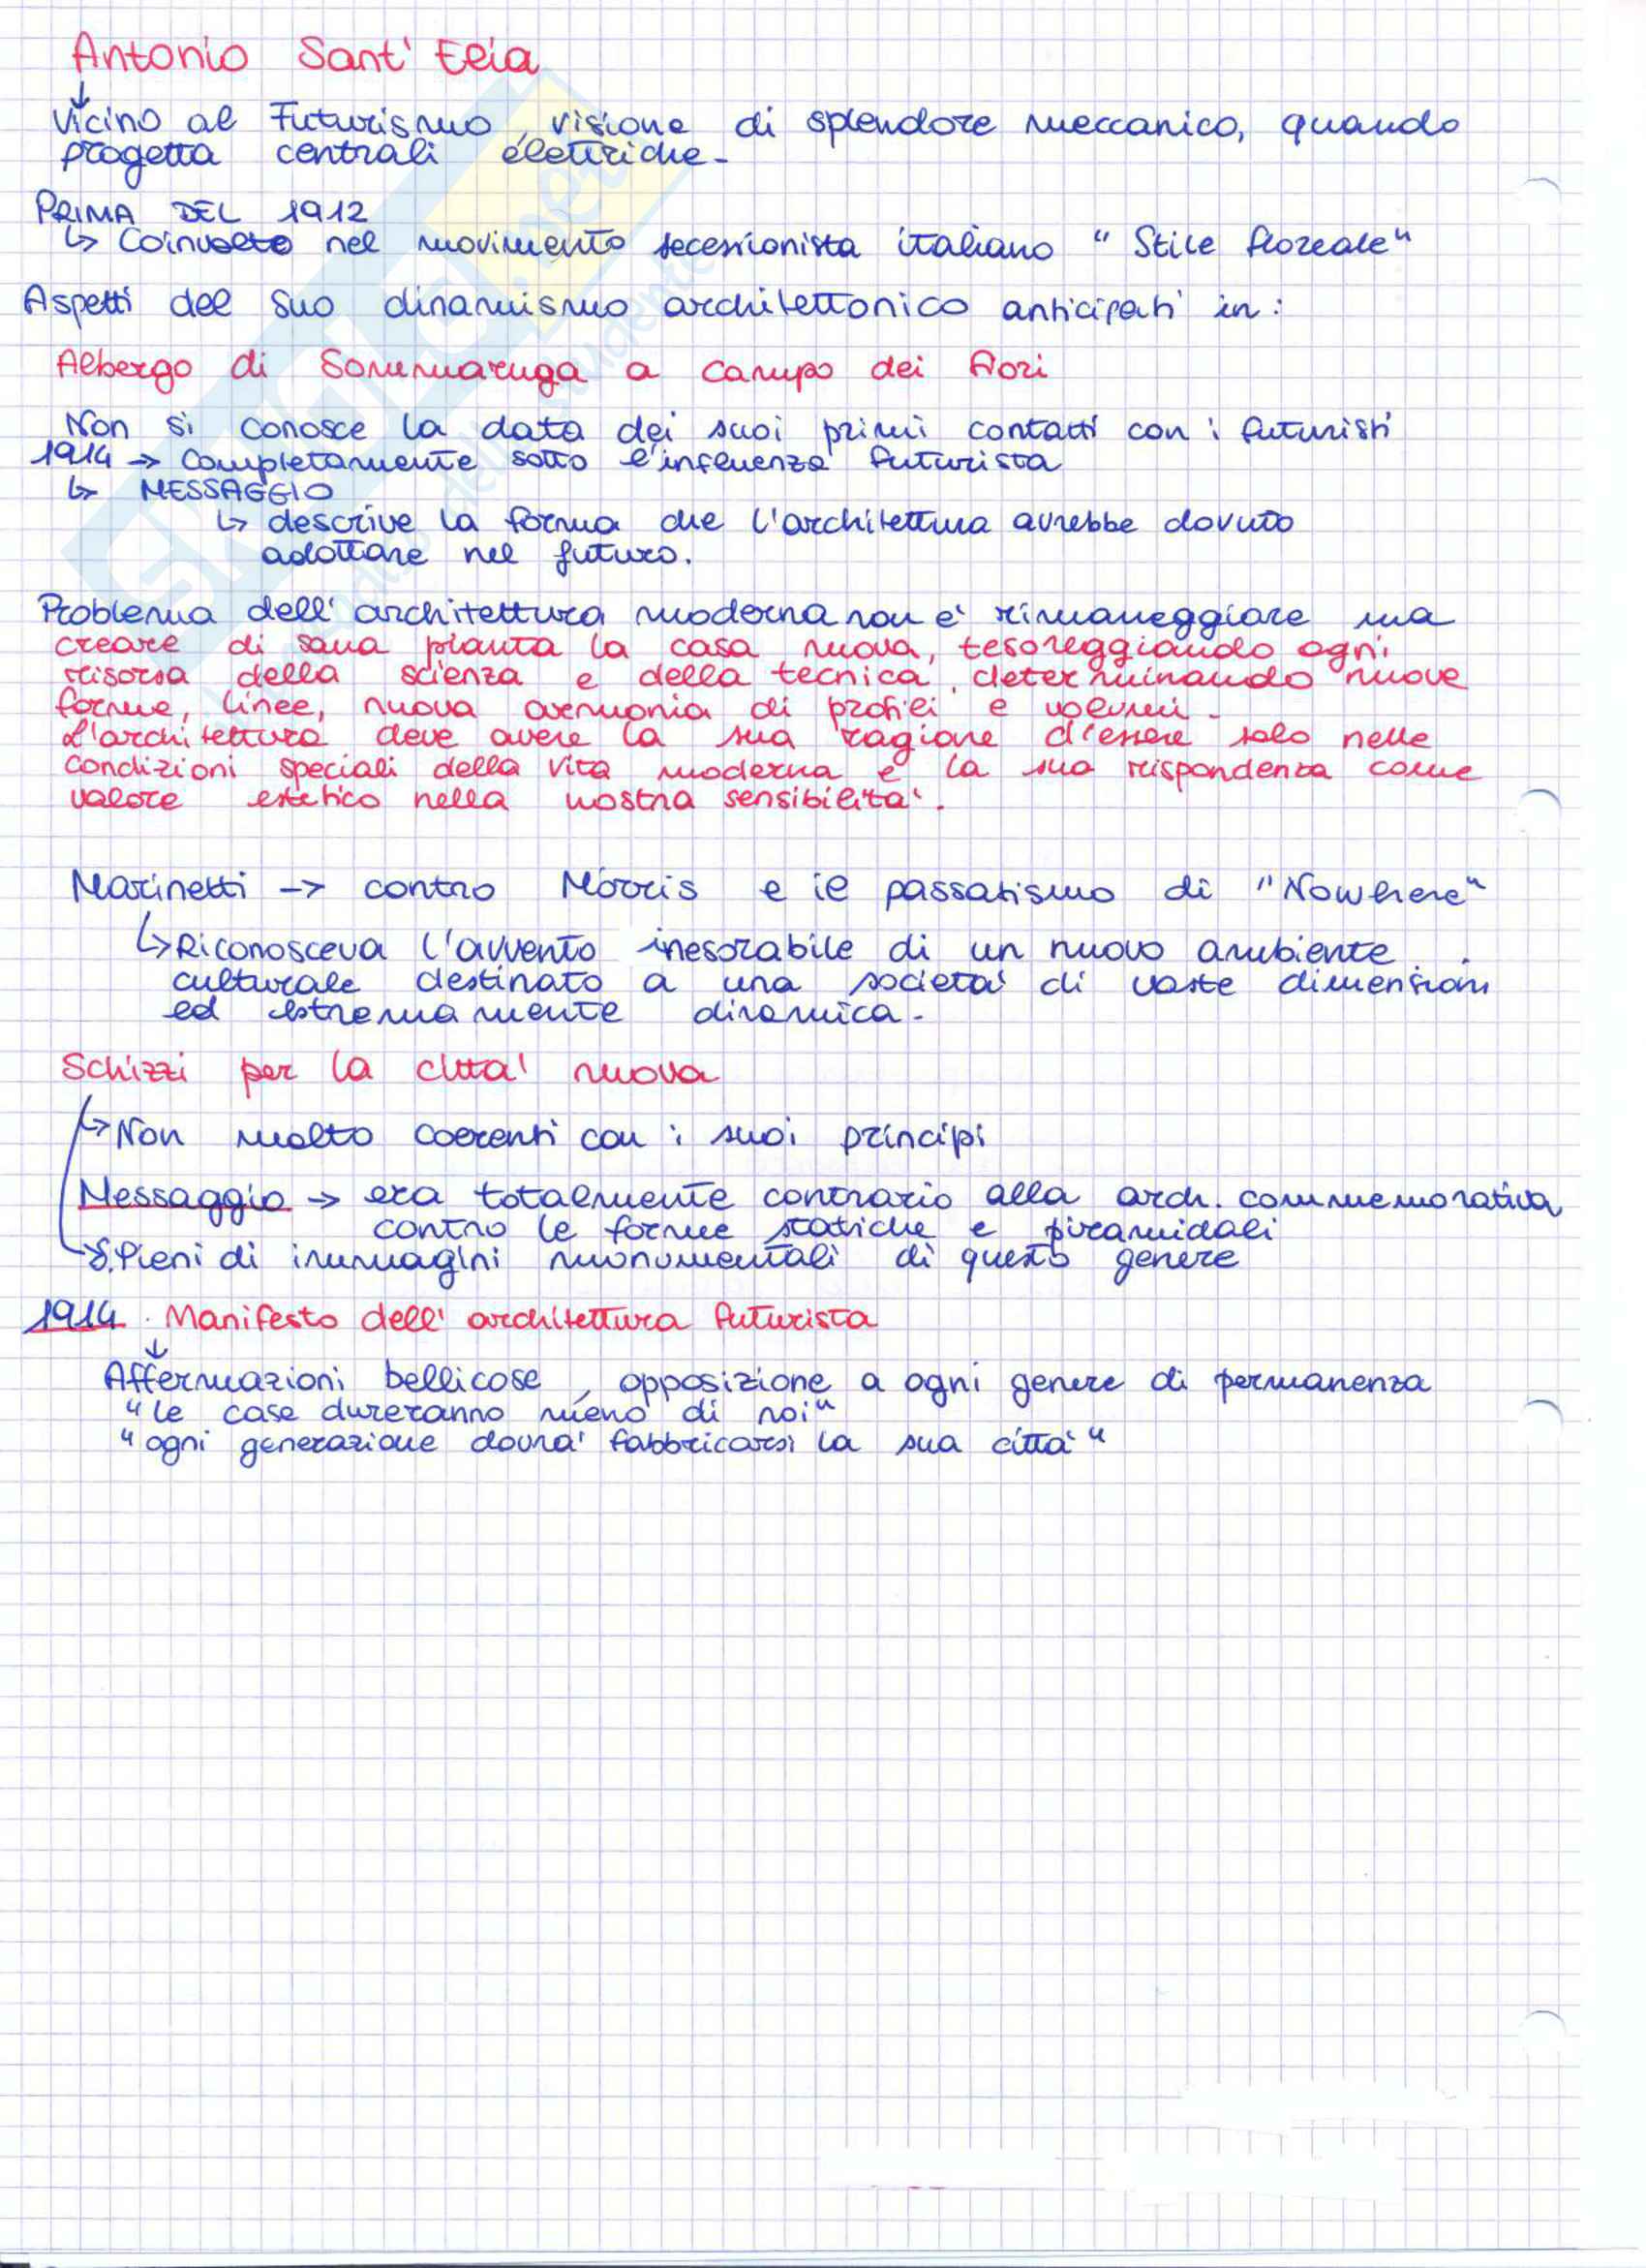 Antonio Sant' Elia
↓
Vicino al Futurismo, visione di splendore meccanico, quando
progetta centrali elettriche-
PRIMA DEL 1912
↳ Coinvolto nel movimento secessionista italiano "Stile floreale"
Aspetti del suo dinamismo architettonico anticipati in:
Albergo di Sommaruga a campo dei fiori
Non si conosce la data dei suoi primi contatti con i futuristi
1914 → Completamente sotto l'influenza futurista
↳ MESSAGGIO
↳ descrive la forma che l'architettura avrebbe dovuto
adottare nel futuro.
Problema dell'architettura moderna non e' rimaneggiare ma
creare di sana pianta la casa nuova, tesoreggiando ogni
risorsa della scienza e della tecnica, determinando nuove
forme, linee, nuova armonia di profili e volumi-
L'architettura deve avere la sua ragione d'essere solo nelle
condizioni speciali della vita moderna e la sua rispondenza come
valore estetico nella nostra sensibilita'.
Marinetti -> contro Morris e il passatismo di "Nowhere"
↳ Riconosceva l'avvento inesorabile di un nuovo ambiente
culturale destinato a una societa' di vaste dimensioni
ed estremamente dinamica-
Schizzi per la citta' nuova
↳ Non molto coerenti con i suoi principi
Messaggio → era totalmente contrario alla arch. commemorativa
contro le forme statiche e piramidali
↳ S. Pieni di immagini monumentali di questo genere
1914. Manifesto dell'architettura futurista
↓
Affermazioni bellicose, opposizione a ogni genere di permanenza
"le case dureranno meno di noi"
"ogni generazione dovra' fabbricarsi la sua citta'"